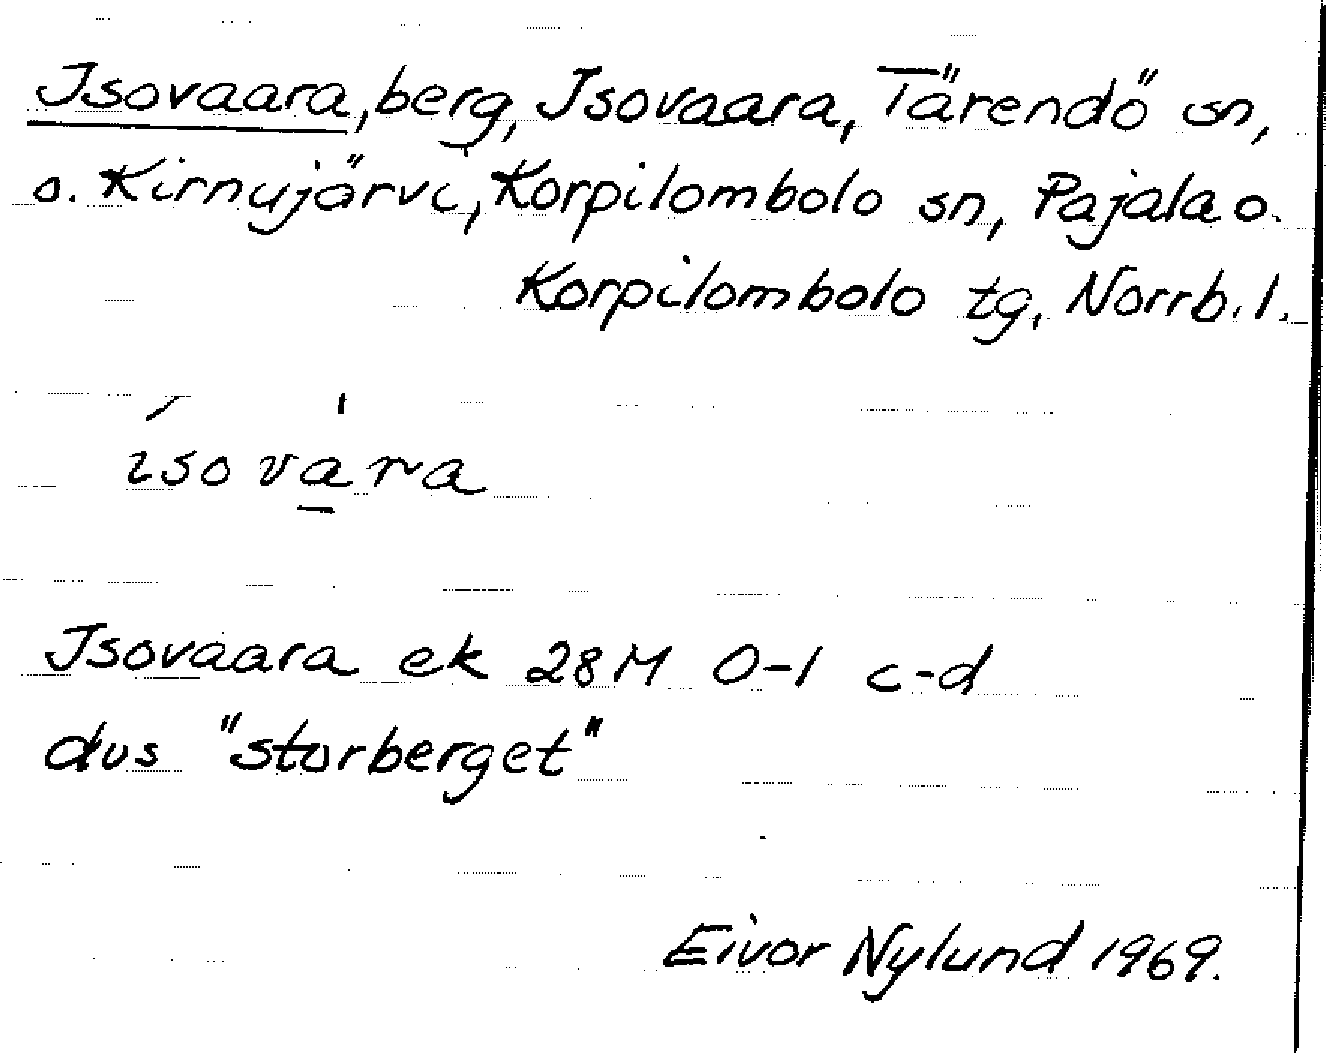 Isovaara, berg, Isovaara, Tärendö sn,
o. Kirnujärvi, Korpilombolo sn, Pajala o.
Korpilombolo tg, Norrb. l.
ísova̲̍ra
Isovaara ek 28M 0-1 c-d
dvs "storberget"
Eivor Nylund 1969.